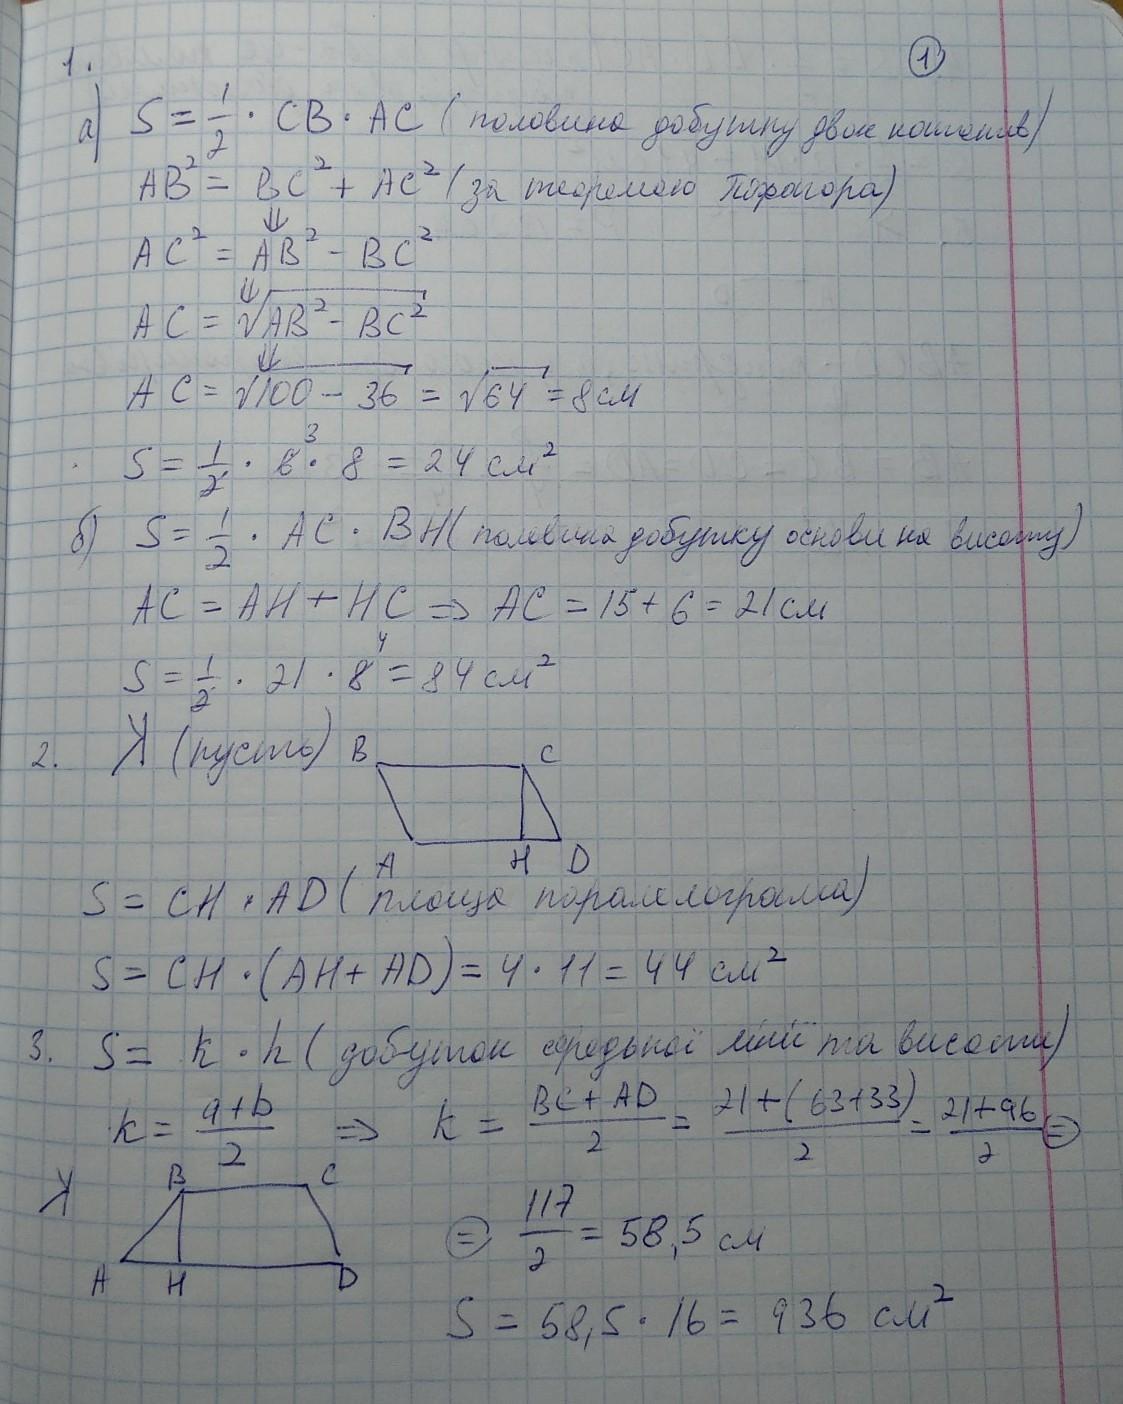 1.
1
а) S = 1/2 · CB · AC (половина добутку двох катетів)
AB² = BC² + AC² (за теоремою Піфагора)
⇓
AC² = AB² - BC²
⇓
AC = √(AB² - BC²)
⇓
AC = √(100 - 36) = √64 = 8 см
S = 1/2 · 6 · 8 = 24 см²
3
б) S = 1/2 · AC · BH (половина добутку основи на висоту)
AC = AH + HC ⇒ AC = 15 + 6 = 21 см
S = 1/2 · 21 · 8 = 84 см²
4
2. (пусть)
B C
A H D
S = CH · AD (площа паралелограма)
S = CH · (AH + AD) = 4 · 11 = 44 см²
3. S = k · h (добуток середньої лінії та висоти)
k = a+b/2 ⇒ k = BC + AD/2 = 21+(63+33)/2 = 21+96/2 =
B C
A H D
= 117/2 = 58,5 см
S = 58,5 · 16 = 936 см²